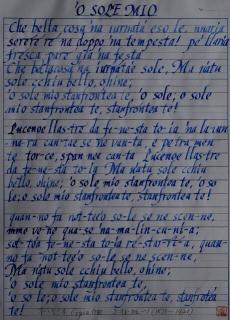 'O SOLE MIO
Che bella cosa 'na iurnata' e so le, nnaria
serere re na doppo 'na tempesta! pe' llaria
fresca pare gia na festa
Che bella cosa na iurnatae sole, Ma natu
sole cchiu bello, ohine;
'o sole mio stanfrontea te, 'o sole; o sole
mio stanfrontea te, stanfrontea te!
Lucenoe llas-tre da fe-ne-sta to-ia na la van-
na-ra can-tae se ne van-ta, e petra men
te tor-ce, span nee can-ta Lucenoe llas-tre
da fe-ne-sta to-la Ma natu sole cchiu
bello, ohine; 'o sole mio stanfrontea te, 'o so
le; o sole mio stanfrontea te, stanfrontea te!
quan-no fa not-te'o so-le se ne scen-ne,
mme ve-no qua-se na-ma-lin-cu-ni-a;
sot-toa fe-ne-sta to-la re-sta-ri-a, quan-
no fa not-te'o so-le se ne scen-ne,
Ma natu sole cchiu bello, ohine;
'o sole mio stanfrontea te,
'o so le; o sole mio stanfrontea te, stanfrontea
te!